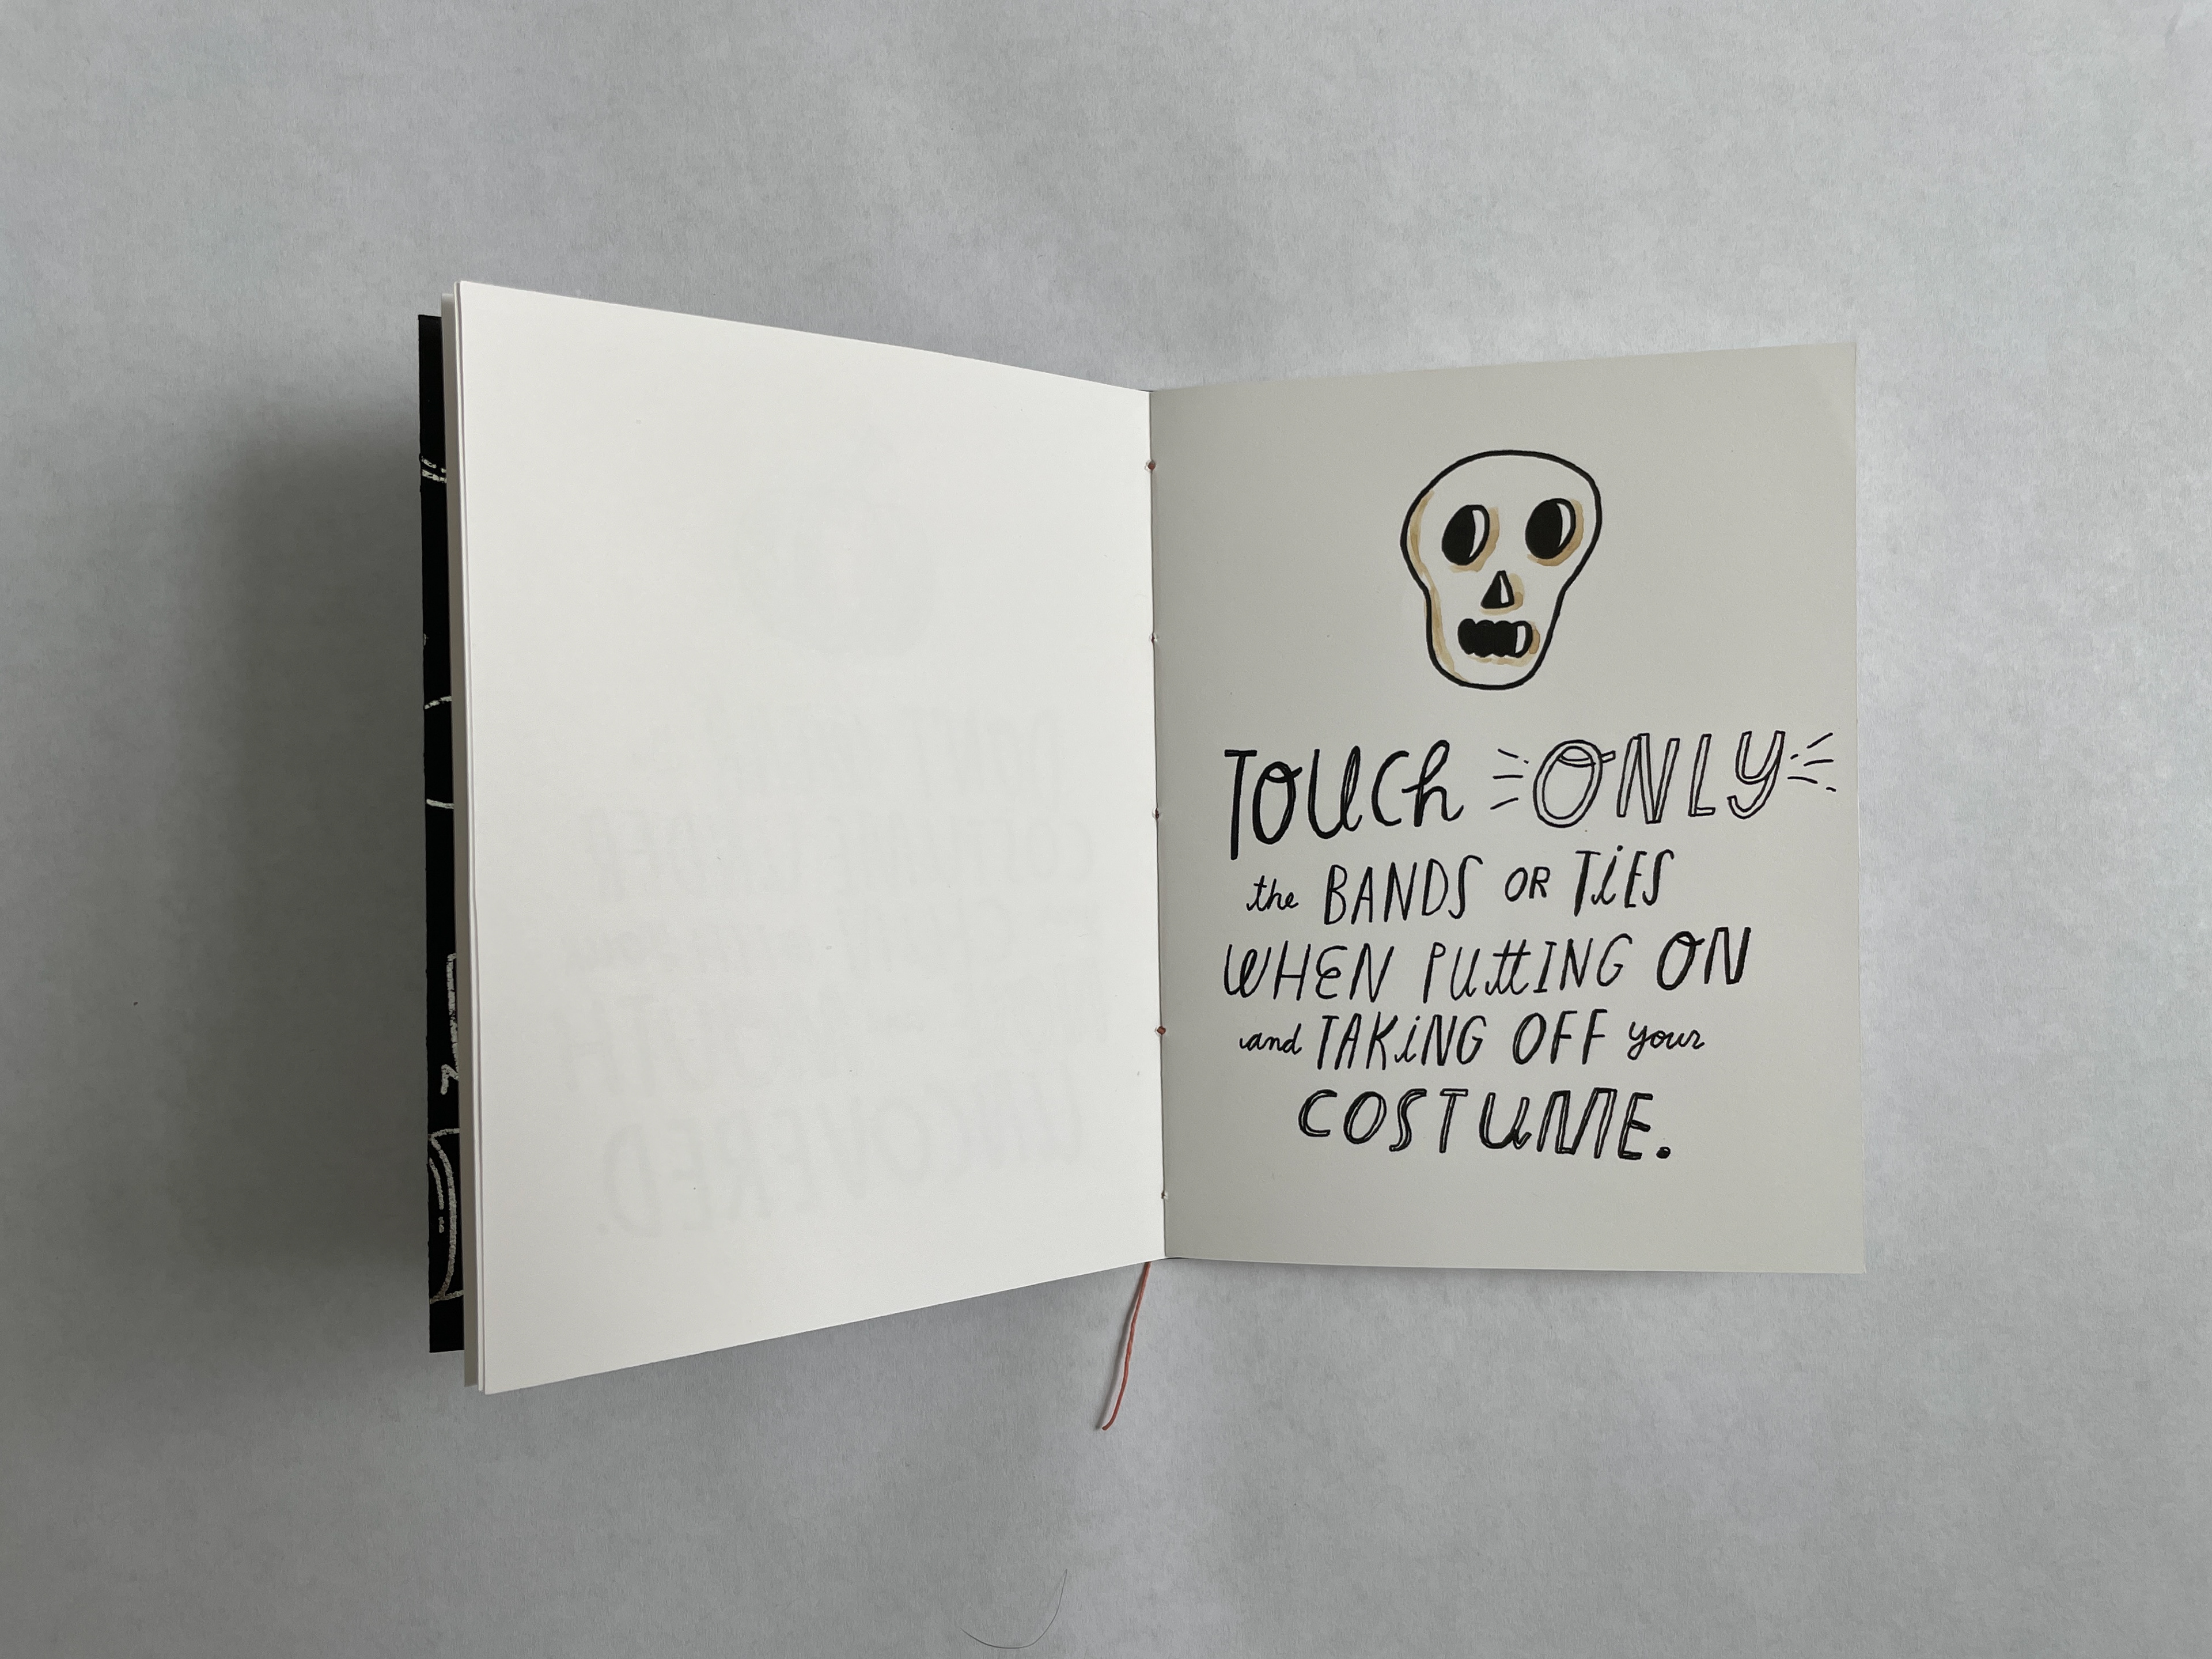 TOUCH ONLY
the BANDS OR TiES
WHEN PUttING ON
and TAKiNG OFF your
COSTUME.